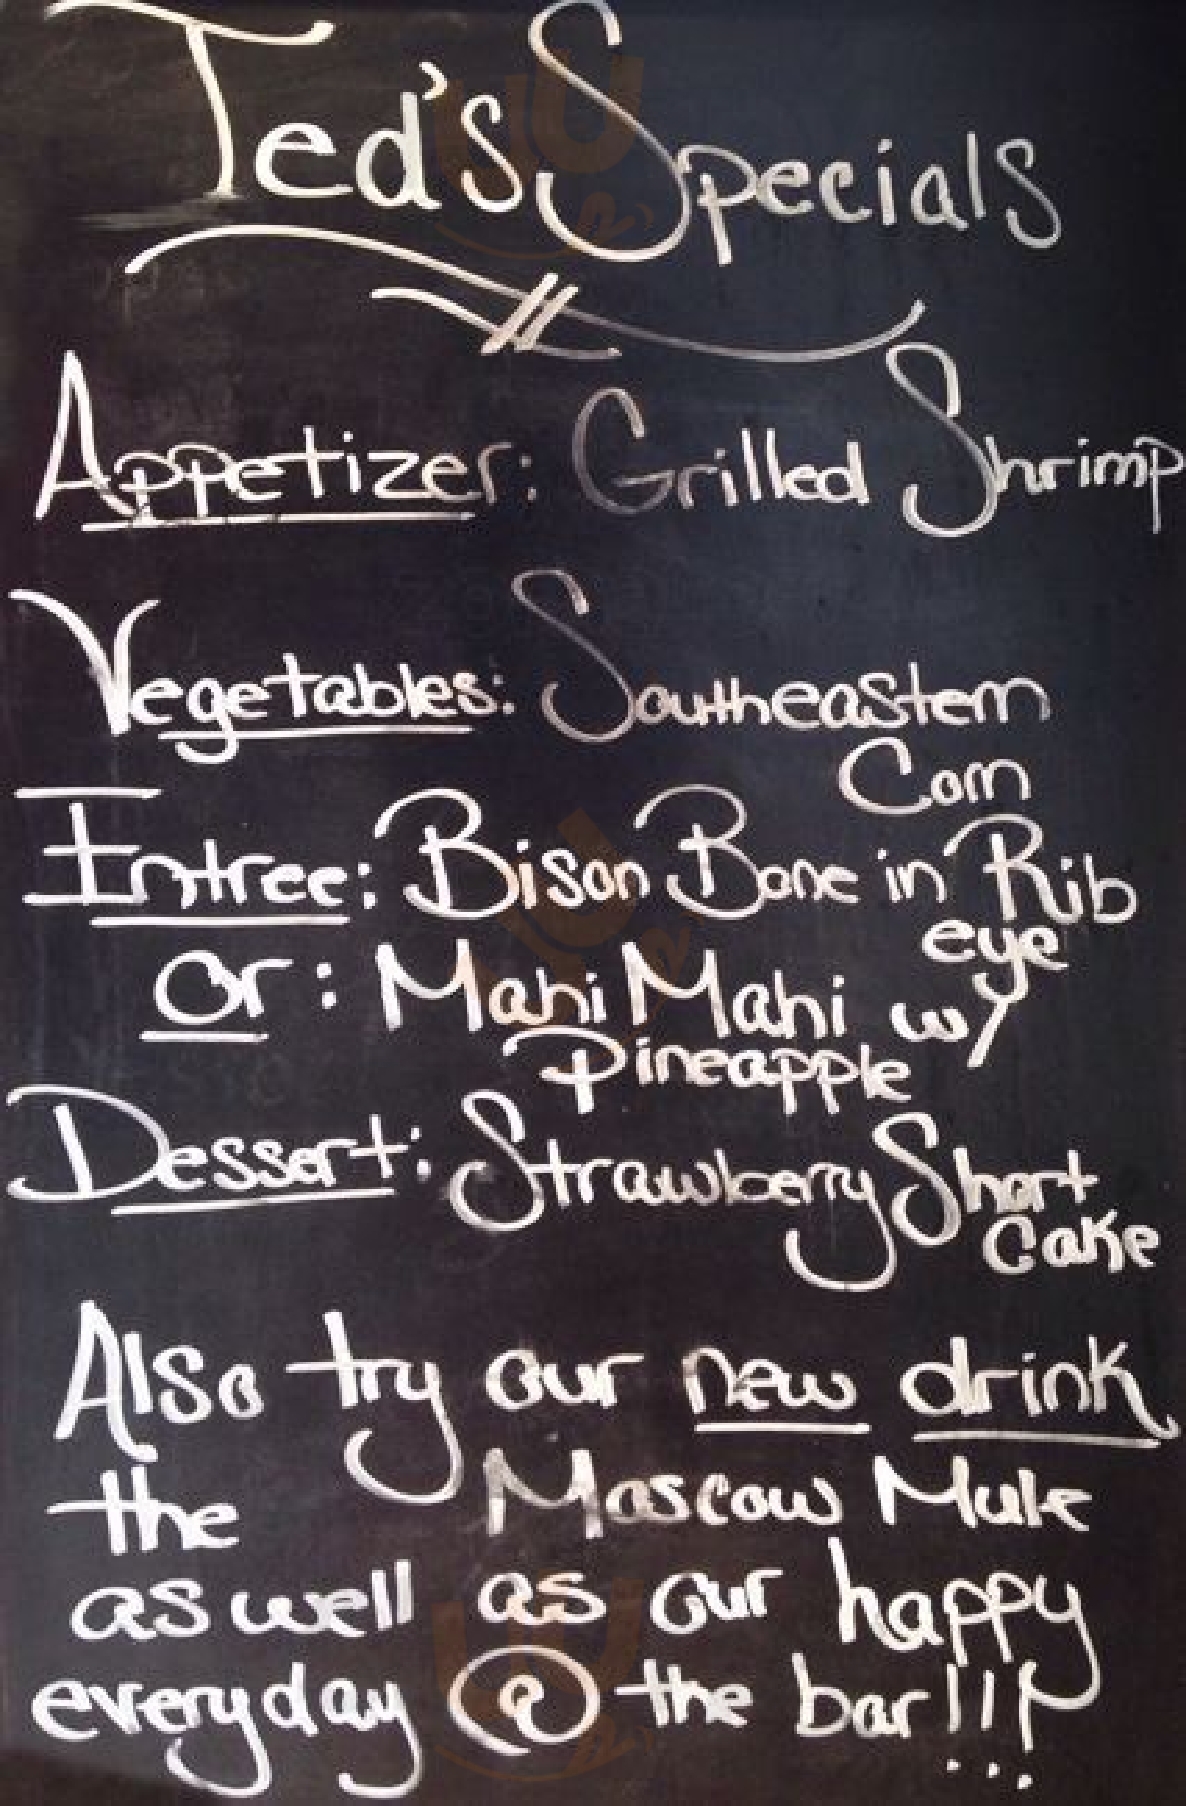 Ted's Specials
Appetizer: Grilled Shrimp
Vegetables: Southeastern
Corn
Intree: Bison Bone in Rib
eye
or: Mahi Mahi w/
Pineapple
Dessert: Strawberry Short
Cake
Also try our new drink
the Moscow Mule
as well as our happy
everyday @ the bar!!!